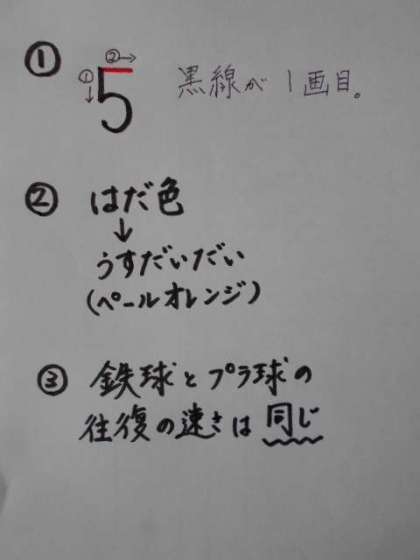 ①
②→
①↓ 5 黒線が1画目。
② はだ色
↓
うすだいだい
(ペールオレンジ)
③ 鉄球とプラ球の
往復の速さは同じ